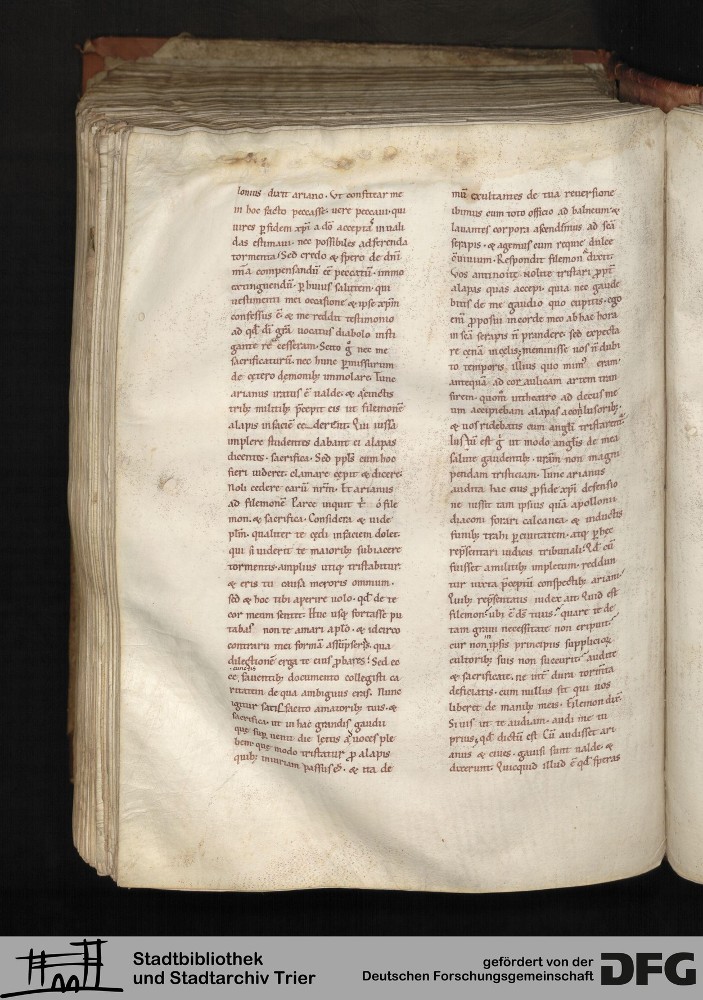 lonius dixit ariano. Ut confitear me
in hoc facto peccasse. uere peccaui. qui
uires ꝑfidem xp̄i a do acceptas inuali
das estimaui. nec possibiles ad ferenda
tormenta. Sed credo & spero de dn̄i
mīa compensandū eē peccatū. immo
extinguendū. ꝑ huius salutem. qui
uestimenti mei occasione & ipse xp̄m
confessus ē. & me reddit testimonio
ad qd̄ dī grā uocatus diabolo insti
gante cesseram. Scito g̊ nec me
sacrificaturū. nec hunc ꝑmissurum
de cetero demonib; immolare. Tunc
arianus iratus ē ualde. &
trib; militib; p̄cepit eis ut filemonē
alapis in faciē cederent. Qui iussa
implere studentes dabant ei alapas
dicentes. sacrifica. Sed ppl̄s cum hoc
fieri uideret. clamare cepit & dicere.
Noli cedere carū nr̄m. Et arianus
ad filemonē. Parce inquit t̄ o file
mon. & sacrifica. Considera & uide
plm̄. qualiter te cedi in faciem dolet.
qui si uiderit te maiorib; subiacere
tormentis. amplius utiq; tristabitur.
& eris tu causa meroris omnium.
sed & hoc tibi aperire uolo. qd̄ de te
cor meum sentit. Huc usq; fortasse pu
tabas non te amari a pl̄o. & idcirco
contrariū mei formā assūpseris. qua
dilectionē erga te eius ꝓbares. Sed ec
cunctis
ce fauentib; documento collegisti ca
ritatem de qua ambiguus eras. Nunc
igitur satisfacito amatorib; tuis. &
sacrifica. ut in hac grandis gaudii
que sup uenit die letus a uoces ple
bem. que modo tristatur ꝓ alapis
quib; iniuriam passus es. & ita de
mū exultantes de tua reuersione
ibimus cum toto officio ad balneum. &
lauantes corpora ascendimus ad scā
serapis. & agemus cum requie dulce
cōuiuium. Respondit filemon dixit.
Vos antinoite nolite tristari ꝓpt̄
alapas quas accepi. quia nec gaude
bitis de me gaudio quo cupitis. ego
eni ꝓposui in corde meo ab hac hora
in scā serapis n̄ prandere. sed expecta
re cenā meminisse uos n̄ dubi
to temporis illius quo mim; eram.
antequā ad coraulicam artem tran
sirem. quom̄ in theatro ad decus me
um accipiebam alapas a collusorib;.
& uos ridebatis cum angli tristarentur.
Iustū est g̊ ut modo anglis de mea
salute gaudentib;. uram non magni
pendam tristiciam. Tunc arianus
audita hac eius ꝓ fide xp̄i defensio
ne iussit tam ipsius quā apollonii
diaconi forari calcanea. & inductis
funib; trahi ꝑ ciuitatem. atq; ꝑ hec
rep̄sentari iudicis tribunali. Qd̄ cū
fuisset a militib; impletum. reddun
tur iuxta p̄ceptū conspectib; ariani.
Quib; rep̄sentatis iudex ait. Quid est
filemon. ubi ē ds̄ tuus. quare te de
tam graui necessitate non eripuit.
cur non ipsis principiis supplicior;
cultorib; suis non succurrit. audite
& sacrificate. ne int̄ dura tormta
deficiatis. cum nullus sit qui uos
liberet de manib; meis. Filemon dix̄.
Si uis ut te audiam. audi me tu
prius. qd̄ dictū est. Cū audisset ari
anus & ciues. gauisi sunt ualde. &
dixerunt. Quicquid illud ē qd̄ speras
Stadtbibliothek
und Stadtarchiv Trier
gefördert von der
Deutschen Forschungsgemeinschaft
DFG